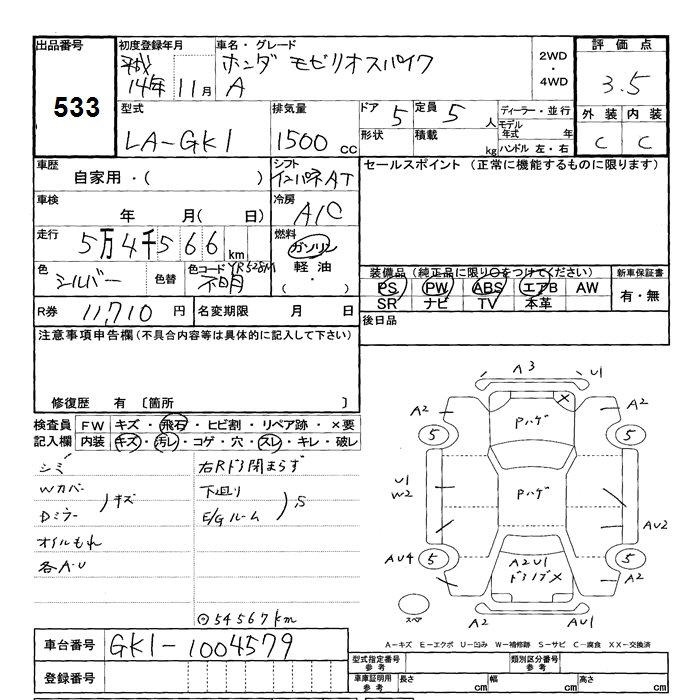 出品番号
533
初度登録年月
平成
14年 11月
車名・グレード
ホンダ モビリオスパイク
A
2WD
・
4WD
評価点
3.5
型式
LA-GK1
排気量
1500 cc
ドア 5
定員 5 人
形状
積載 kg
ディーラー・並行
モデル年式 年
ハンドル 左・右
外装 内装
C C
車歴
自家用・( )
シフト
インパネAT
セールスポイント (正常に機能するものに限ります)
車検
年 月( 日)
冷房
A/C
走行
5万4千566 km
燃料
ガソリン
軽油
( ・ )
色
シルバー
色替
色コード YR528M
不明
装備品(純正品に限り○をつけてください)
PS PW ABS エアB AW
SR ナビ TV 本革
新車保証書
有・無
R券 11,710 円
名変期限 月 日
後日品
注意事項申告欄(不具合内容等は具体的に記入して下さい)
修復歴 有 〔箇所 〕
検査員
記入欄
FW キズ・飛石・ヒビ割・リペア跡・×要
内装 キズ・汚レ・コゲ・穴・スレ・キレ・破レ
シミ
Wカバー
Dミラー
キズ
オイルもれ
各A・U
右Rドア閉まらず
下廻り
E/Gルーム
S
54567km
A3
U1
A2
A2
Pハゲ
×
5
5
U1
W2
Pハゲ
AU2
AU4
5
5
A2U1
A2
A2
AU1
スペア
A-キズ E-エクボ U-凹み W-補修跡 S-サビ C-腐食 XX-交換済
車台番号
GK1-1004579
登録番号
型式指定番号
参考
類別区分番号
参考
車庫証明用
参考
長さ cm
幅 cm
高さ cm